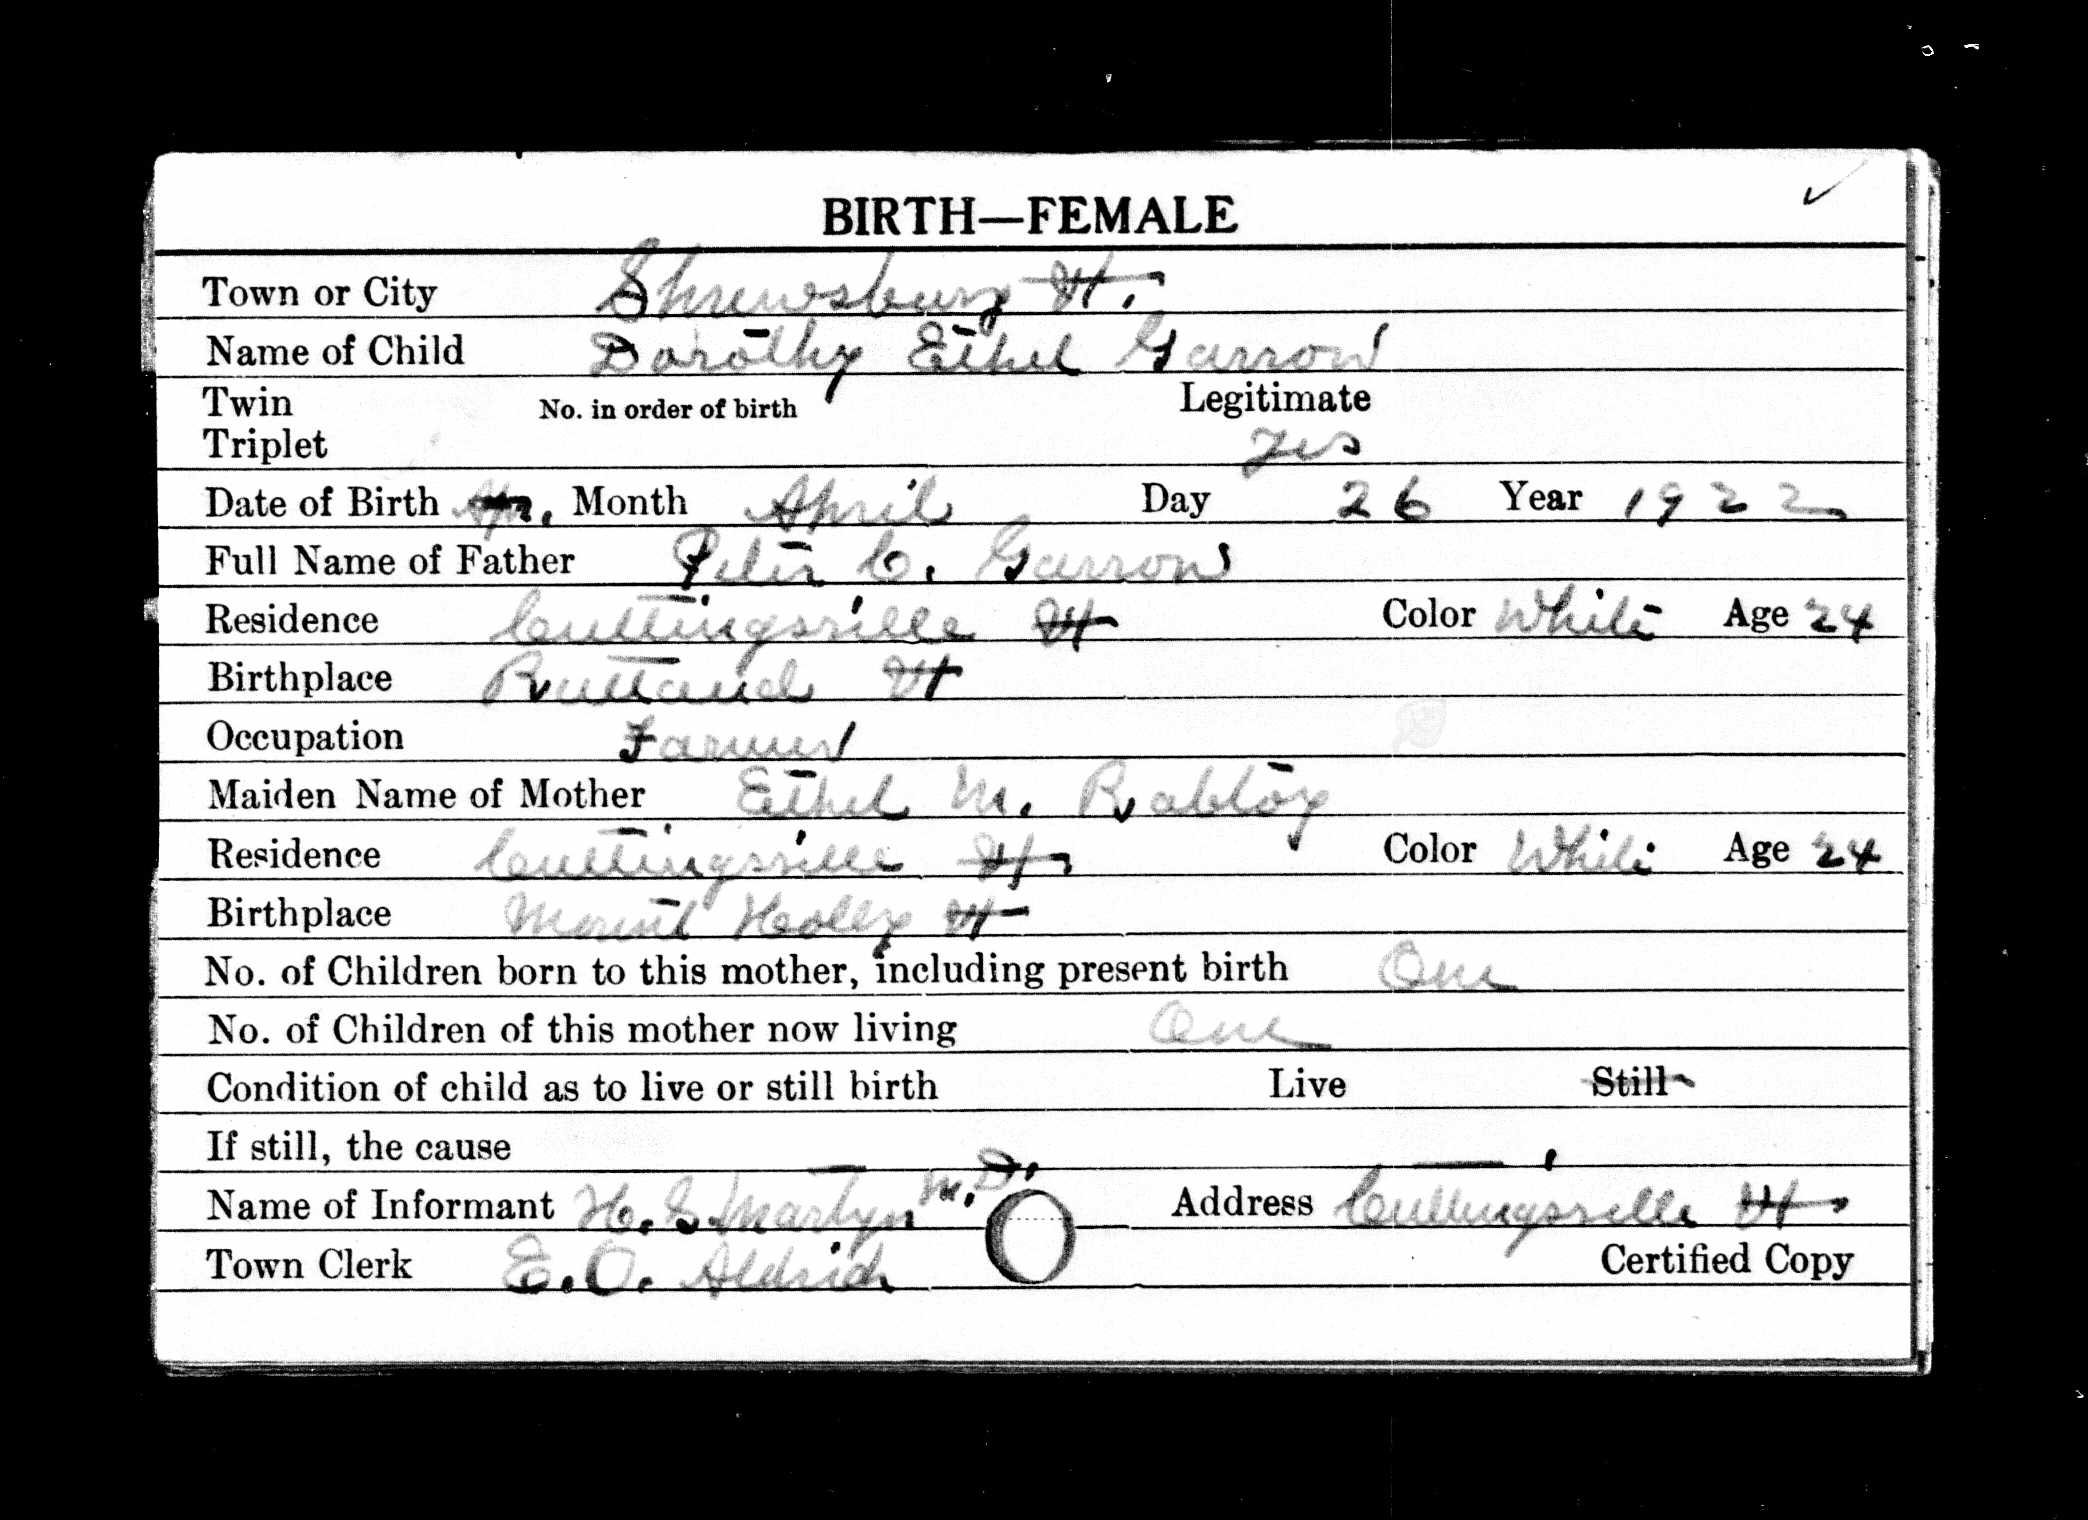 BIRTH—FEMALE
Town or City Shrewsbury Vt.
Name of Child Dorothy Ethel Garrow
Twin No. in order of birth Legitimate
Triplet Yes
Date of Birth Month April Day 26 Year 1922
Full Name of Father Peter C. Garrow
Residence Cuttingsville Vt Color White Age 24
Birthplace Rutland Vt
Occupation Farmer
Maiden Name of Mother Ethel M. Rabtoy
Residence Cuttingsville Vt Color White Age 24
Birthplace Mount Holly Vt
No. of Children born to this mother, including present birth One
No. of Children of this mother now living One
Condition of child as to live or still birth Live Still
If still, the cause
Name of Informant H. S. Martyn M.D. Address Cuttingsville Vt
Town Clerk E. O. Aldrich Certified Copy